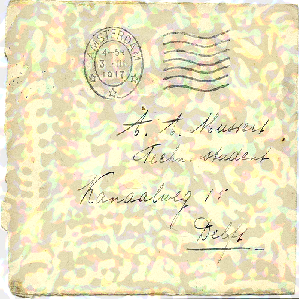 AMSTERDAM
3 - III
1917
A. A. Mussert
Techn. student
Kanaalweg
Delft